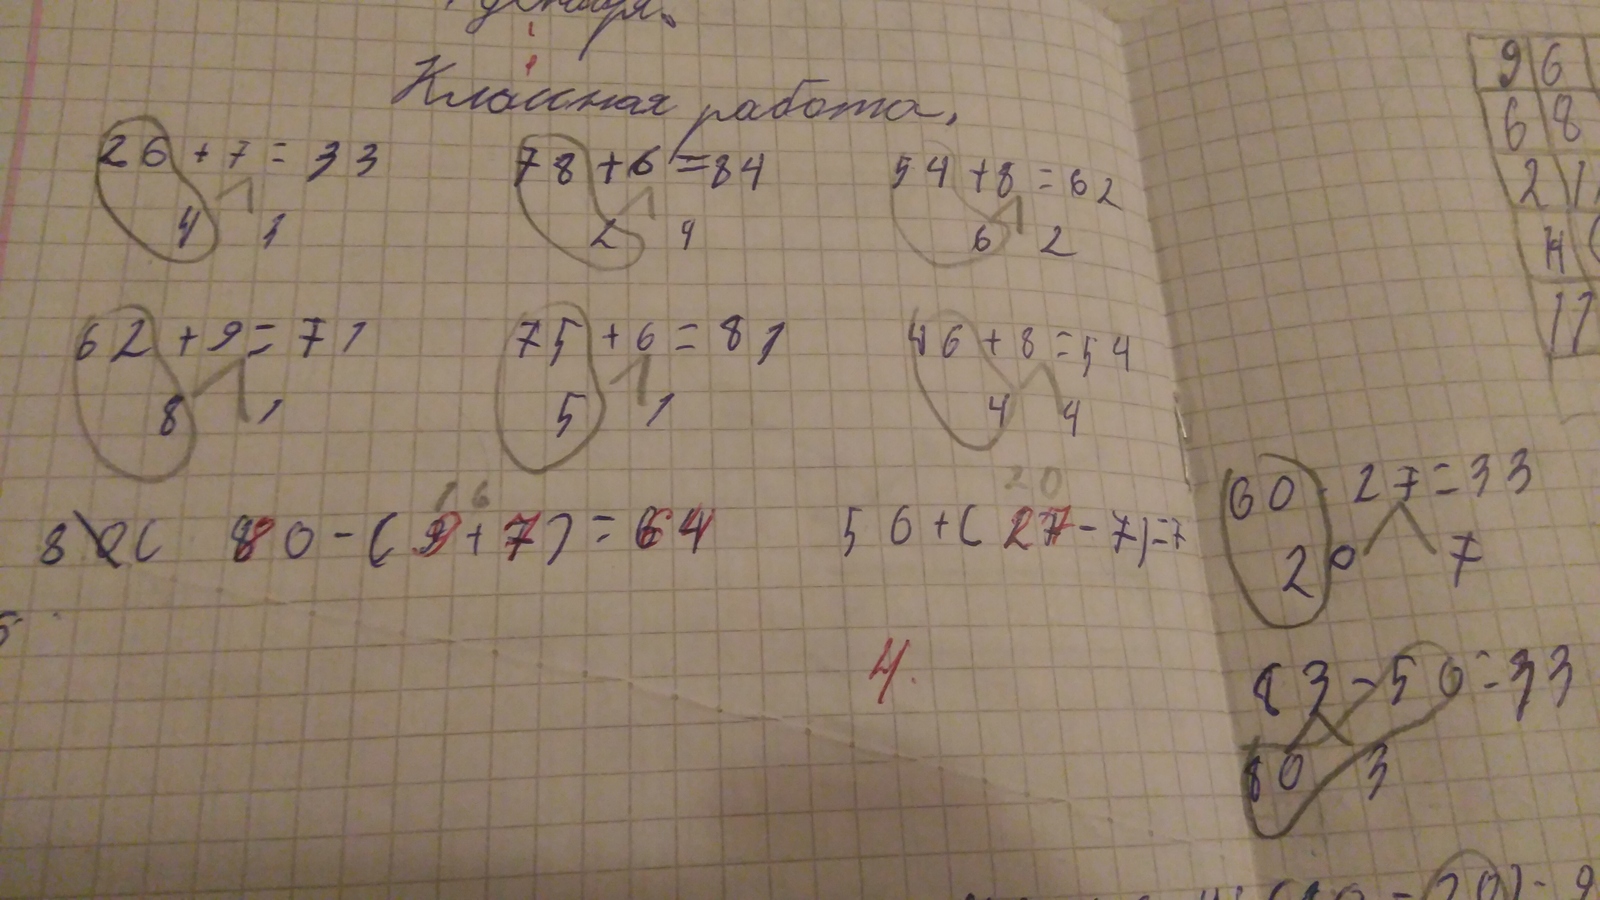 Классная работа.
26 + 7 = 33 78 + 6 = 84 54 + 8 = 62
4 3 2 4 6 2
62 + 9 = 71 75 + 6 = 81 46 + 8 = 54
8 1 5 1 4 4
16 20
80 - ( 9 + 7 ) = 64 56 + ( 27 - 7 ) = 7
4.
9 6
6 8
2 1
14
17
60 - 27 = 33
20 7
83 - 50 = 33
80 3